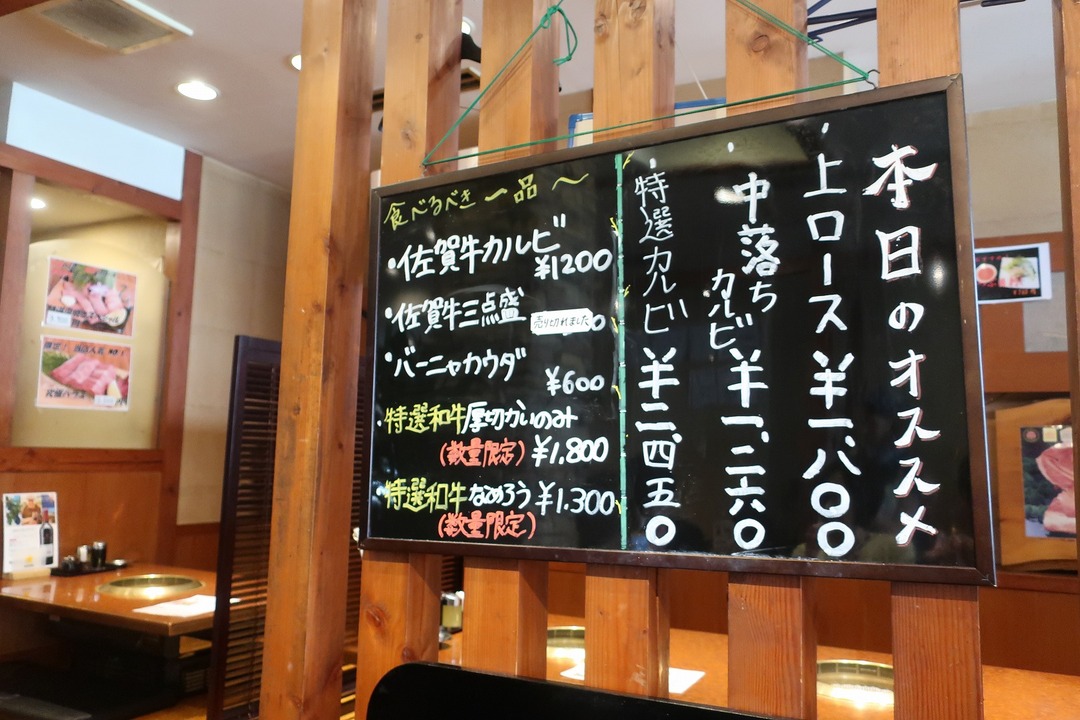 本日のオススメ
上ロース ¥一、八〇〇
中落ちカルビ ¥一、二六〇
特選カルビ ¥二、四五〇
食べるべき一品〜
・佐賀牛カルビ
¥1200
・佐賀牛三点盛
売り切れました
・バーニャカウダ
¥600
・特選和牛厚切かいのみ
(数量限定) ¥1,800
・特選和牛なめろう ¥1,300
(数量限定)